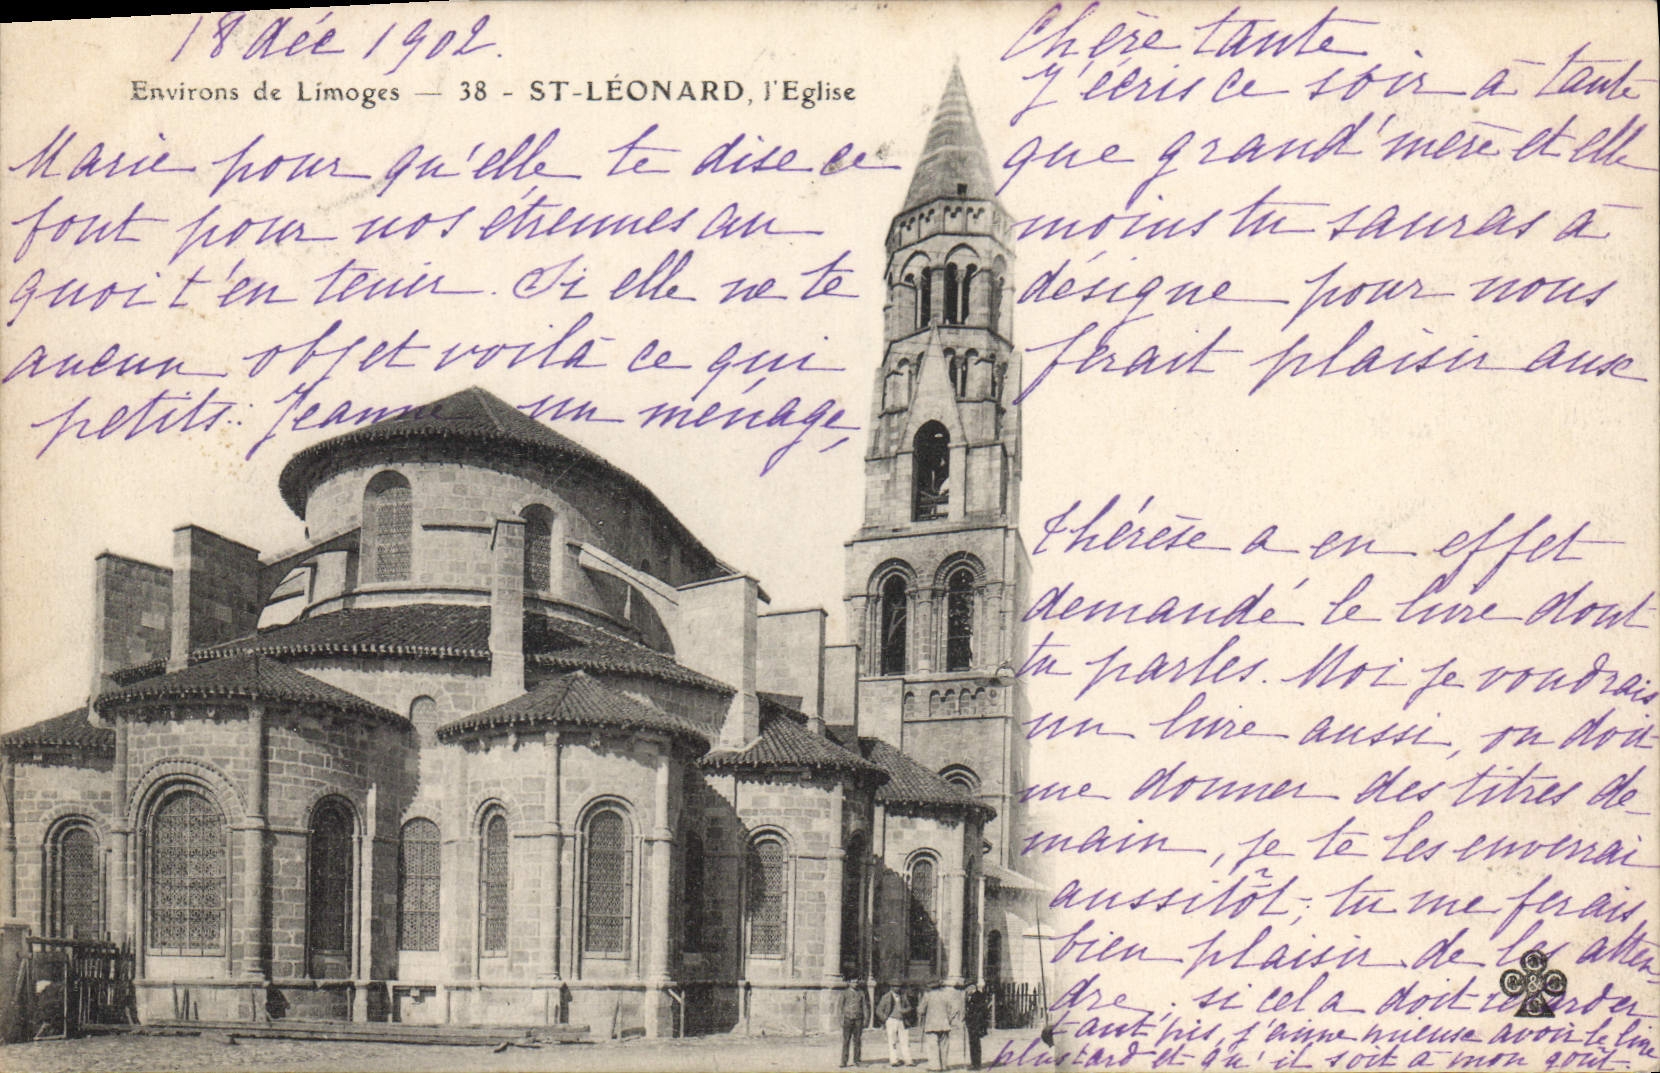 18 déc 1902.
Environs de Limoges — 38 - ST-LÉONARD, l'Eglise
Chère tante
J'écris ce soir à tante
Marie pour qu'elle te dise ce que grand'mère et elle
font pour nos étrennes au moins tu sauras à
quoi t'en tenir. Si elle ne te désigne pour nous
aucun objet voilà ce qui ferait plaisir aux
petits : Jeanne un ménage,
Thérèse a en effet
demandé le livre dont
tu parles. Moi je voudrais
un livre aussi, on doit
me donner des titres de-
main, je te les enverrai
aussitôt ; tu me ferais
bien plaisir de les atten-
dre ; si cela doit retarder
tant pis, j'aime mieux avoir le livre
plus tard et qu'il soit à mon goût.